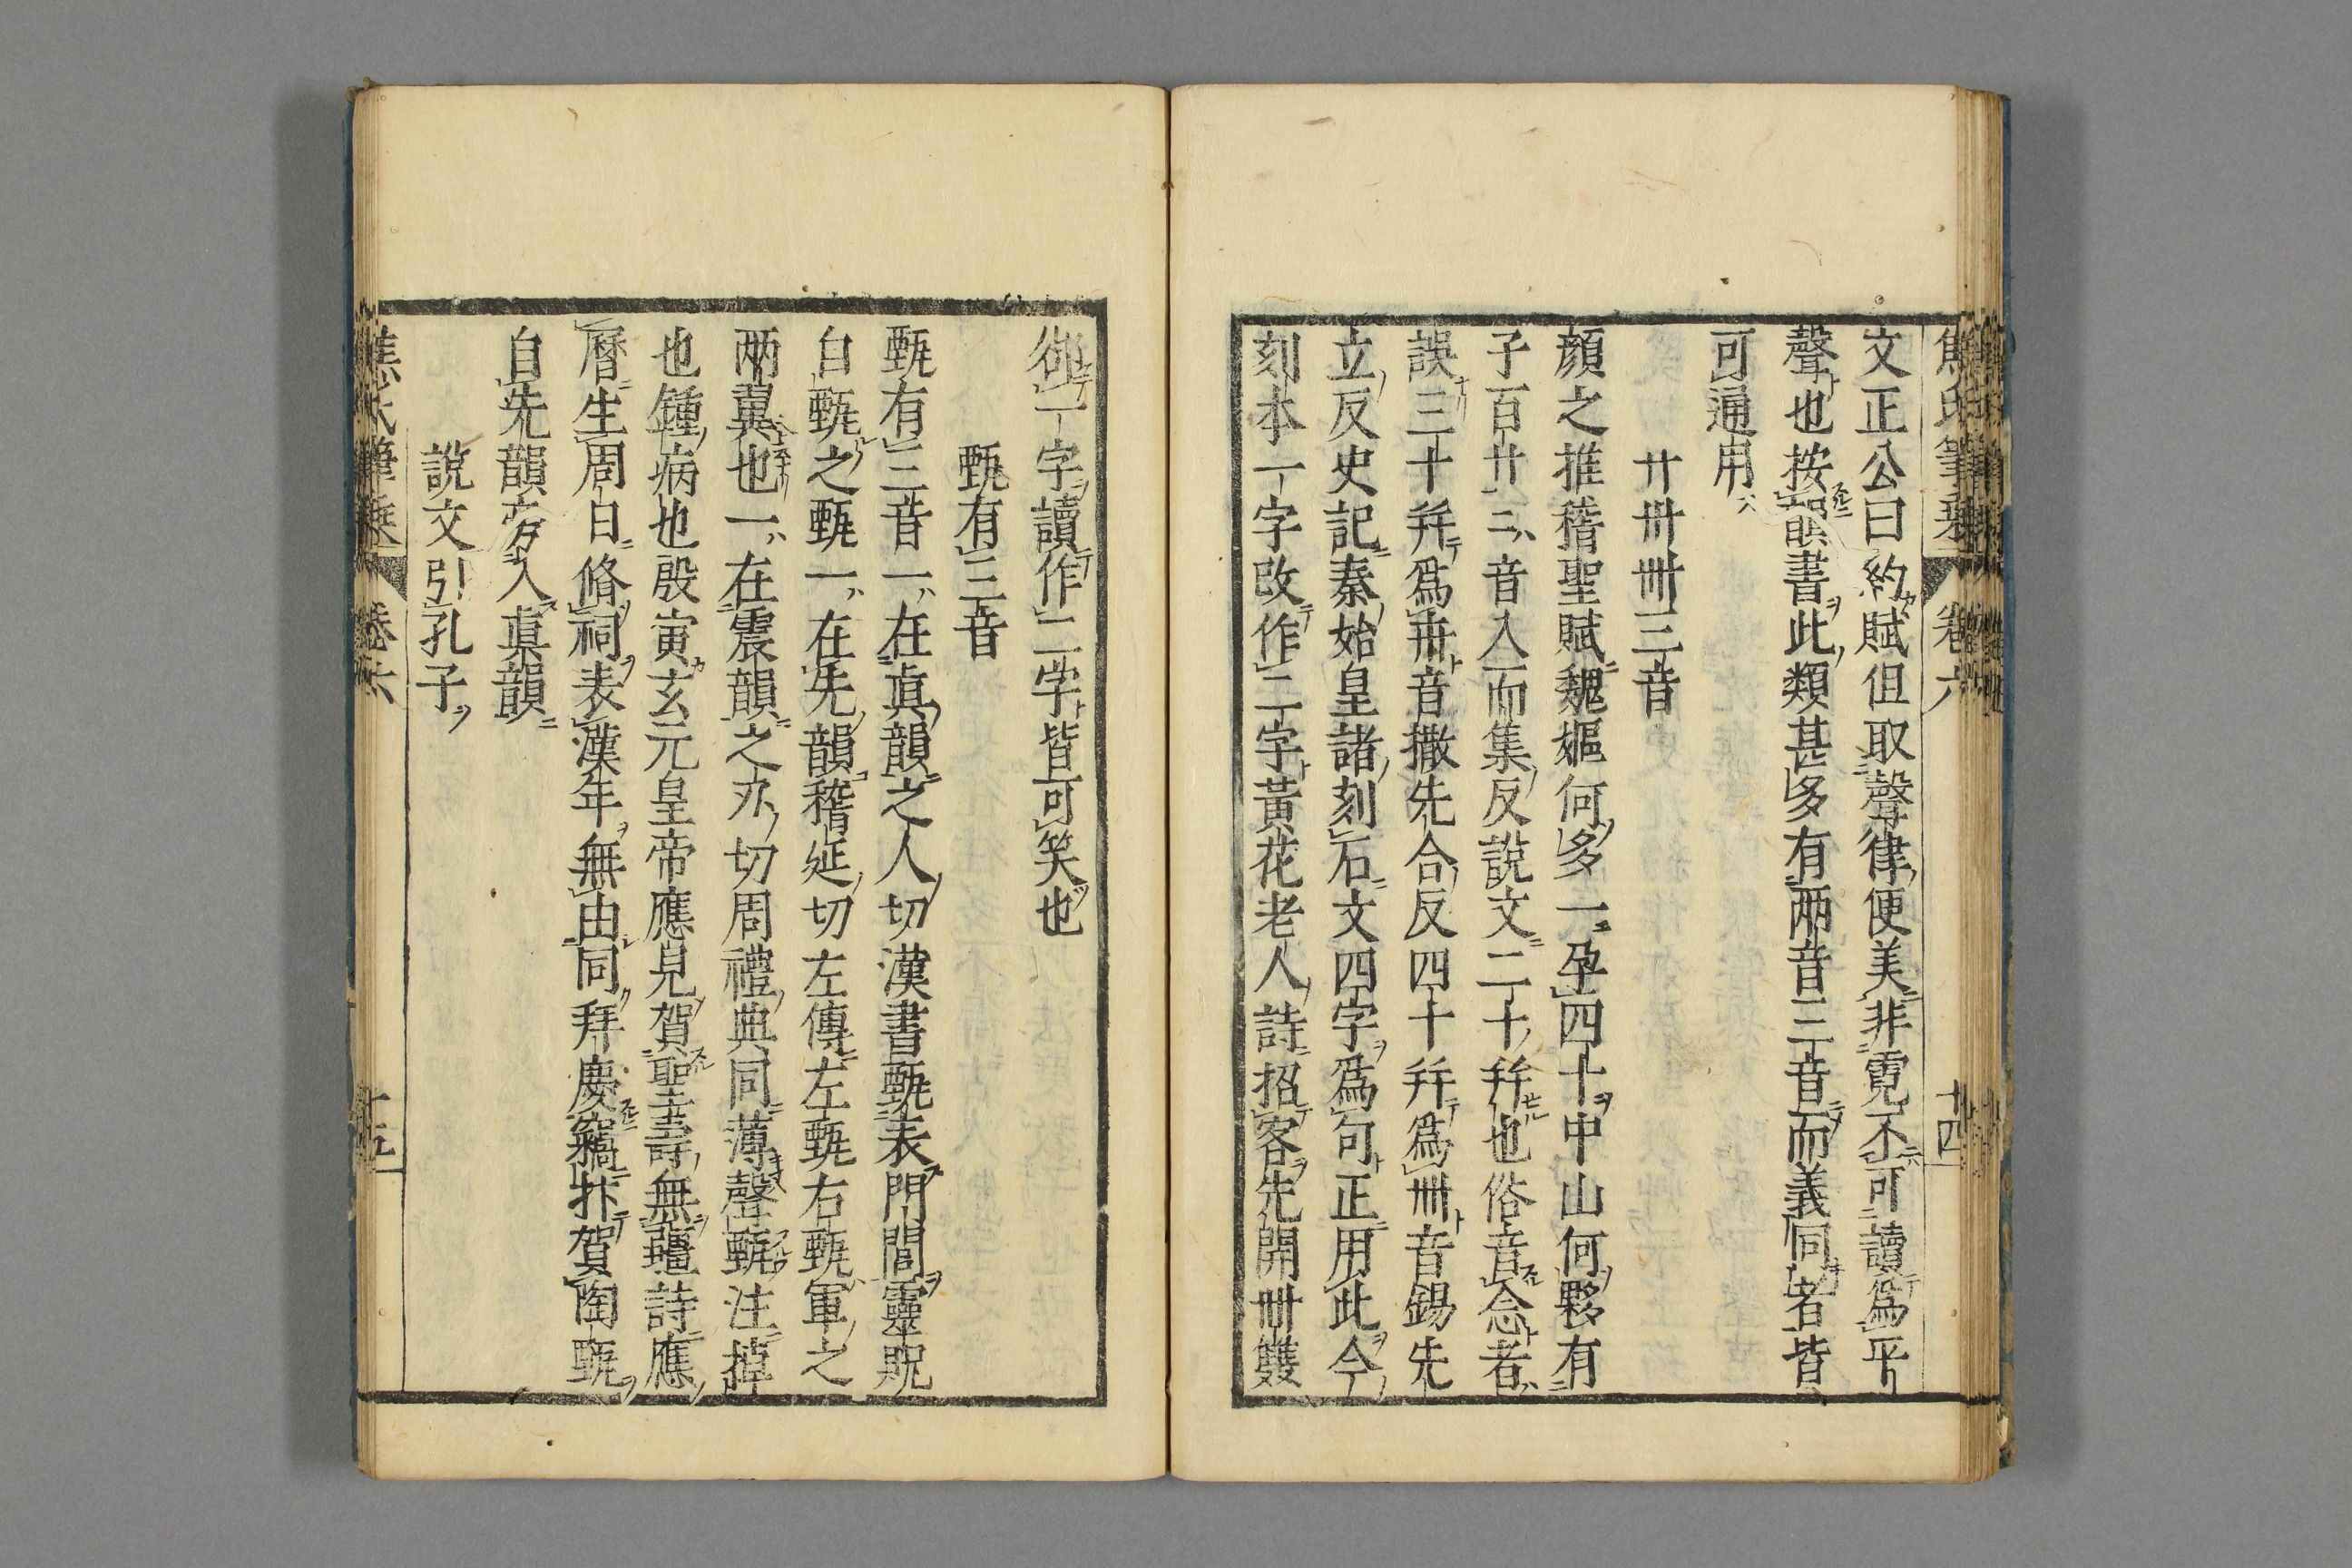 焦氏筆乗 卷六 十四
文正公曰約賦但取聲律便美非霓不可讀為平
聲也按韻書此類甚多有兩音三音而義同者皆
可通用
廿卅卌三音
顔之推稽聖賦魏嫗何多一孕四十中山何夥有
子百廿廿音入而集反說文二十并也俗音念者
誤三十并爲卅音撒先合反四十并爲卌音錫先
立反史記秦始皇諸刻石文四字爲句正用此今
刻本一字改作二字黃花老人詩招客先開卌雙
一字讀作二字皆可笑也
甄有三音
甄有三音一在眞韻之人切漢書甄表門閭靈貺
自甄之甄一在先韻稽延切左傳左甄右甄軍之
兩翼也一在震韻之刃切周禮典同薄聲甄注掉
也鍾病也殷寅玄元皇帝應見賀聖壽無疆詩應
曆生周日脩祠表漢年無由同拜慶竊抃賀陶甄
自先韻旁入眞韻
說文引孔子
焦氏筆乗 卷六 十五